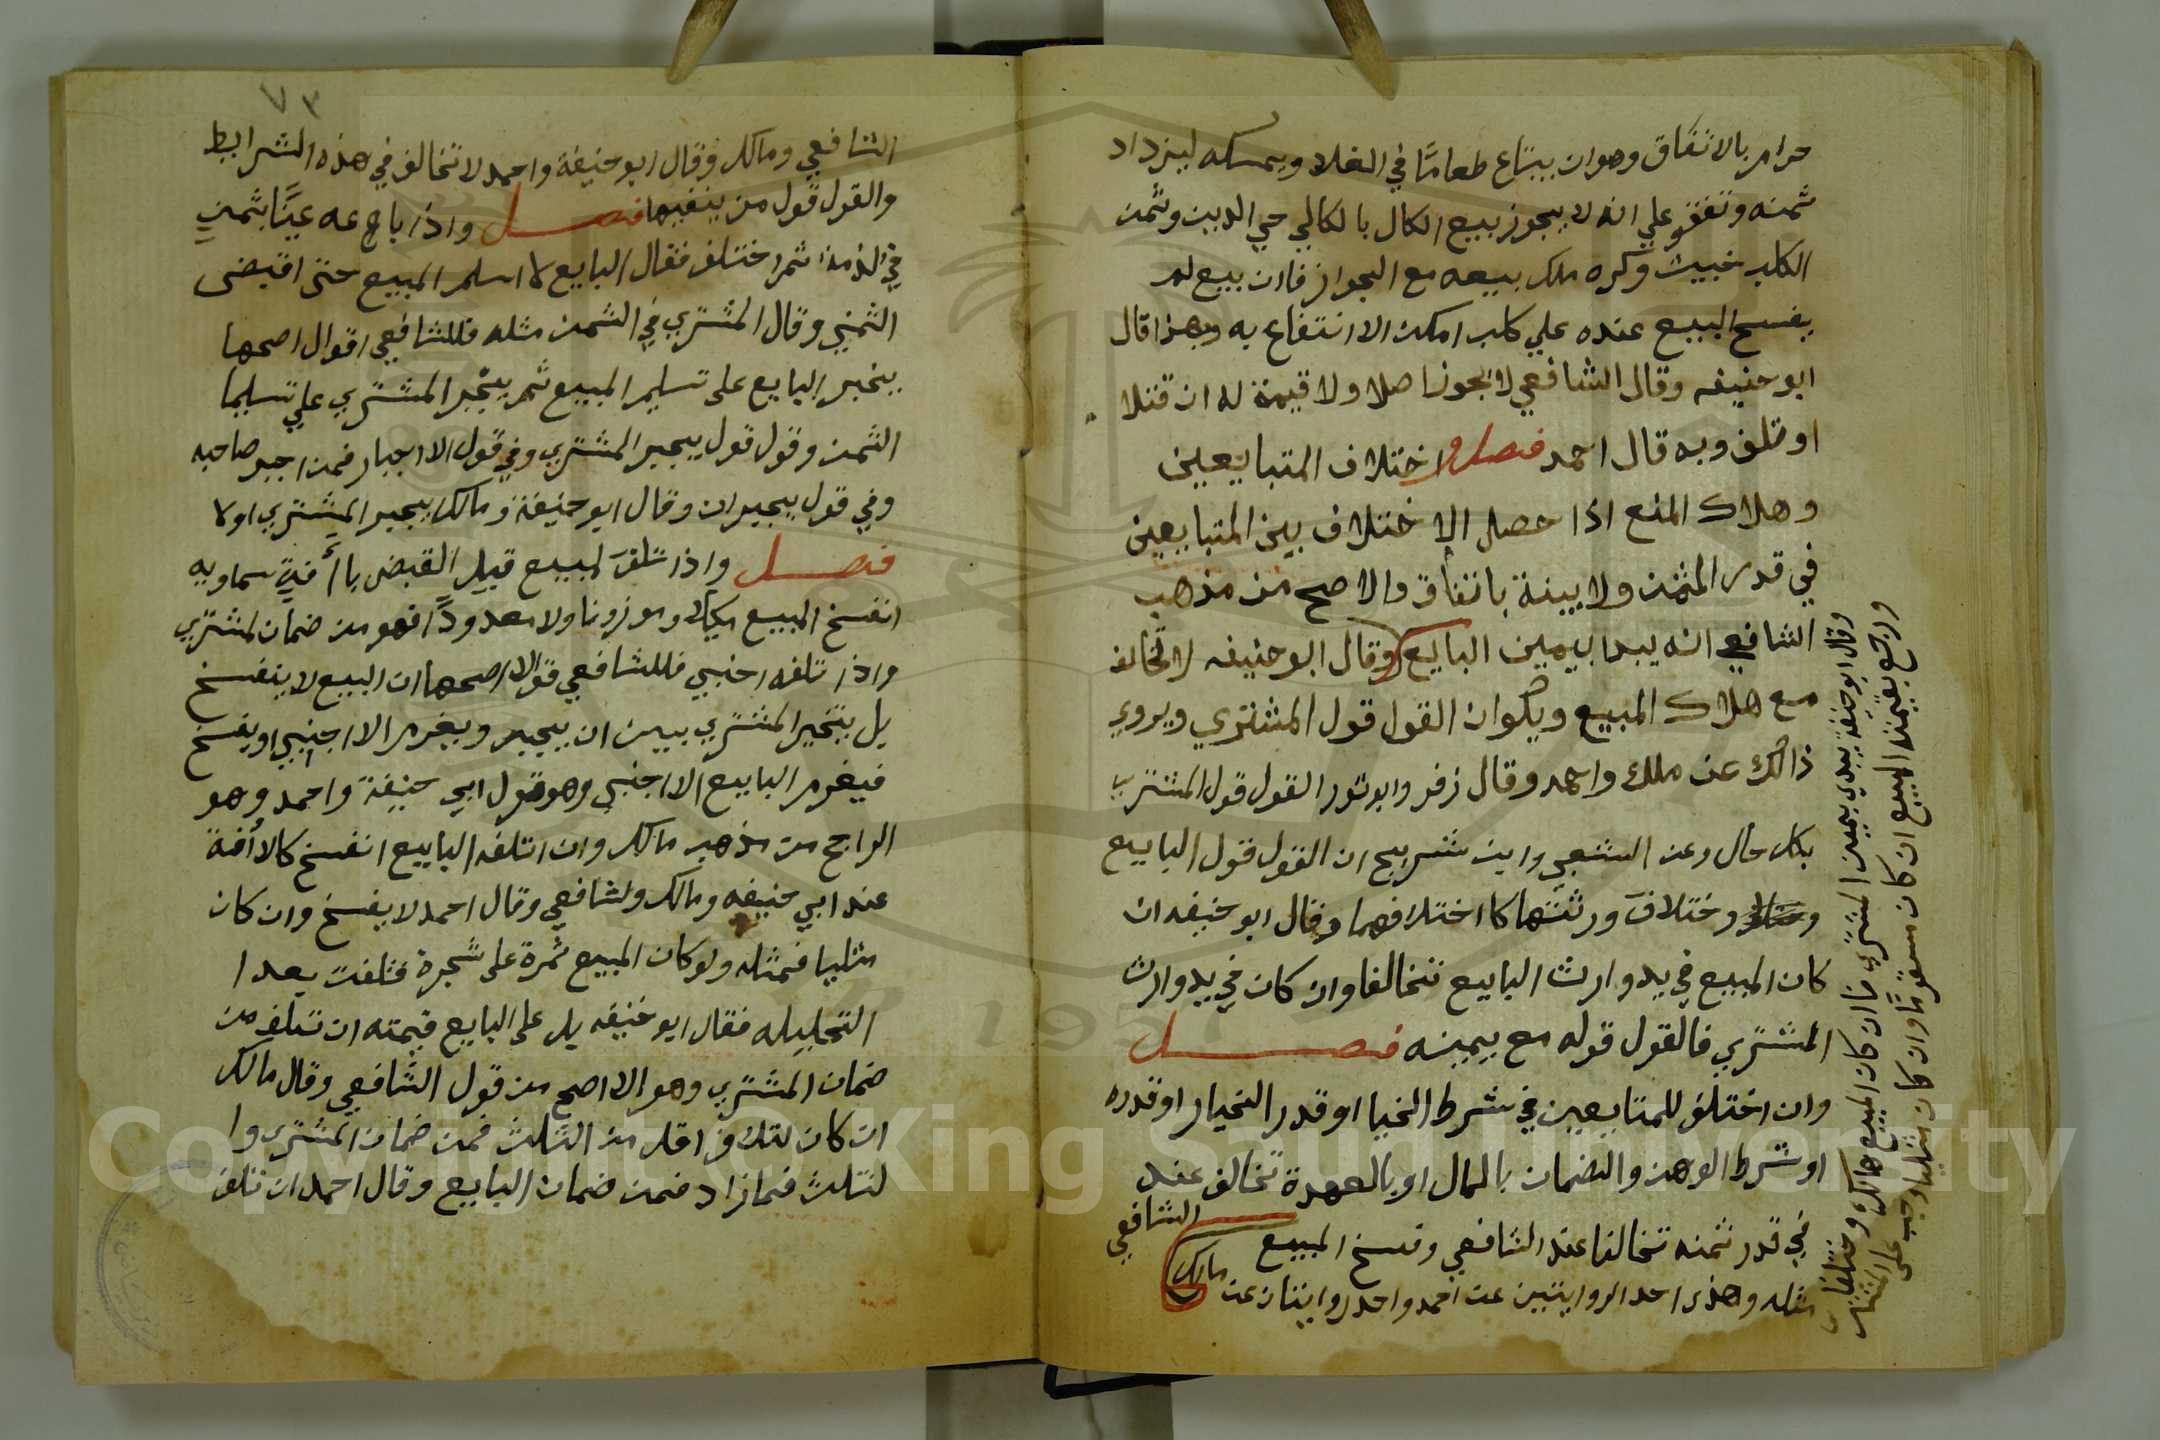 حرام بالاتفاق وهوان يبتاع طعامًا في الغلا ويمسكه ليزداد
ثمنه وتفقو علي انه لا يجوز بيع الكال بالكالي حي الدين وثمن
الكلب خبيث وكره ملك بيعه مع الجواز فاان بيع لم
يفسخ البيع عنده علي كلب امكن الاانتفاع به وبهذا قال
ابو حنيفه وقال الشافعي لا يجوز اصلا ولا قيمة له ان قتلا
اوتلف وبه قال احمد فصل و اختلاف المتبايعين
وهلاك المنع اذا حصل الاختلاف بين المتبايعين
في قدر المثمن ولا بينة باتفاق والاصح من مذهب
الشافعي انه يبدا بيمين البايع وقال ابو حنيفه لا تخالف
مع هلاك المبيع ويكوان القول قول المشتري ويروي
ذالك عن ملك واحمد وقال زفر وابو ثور القول قول المشتري
بكل حال وعن الشعبي وابن شريح ان القول قول البايع
وختلاف ورثتها كا اختلافهما وقال ابو حنيفه ان
كان المبيع في يد وارث البايع تخالفا وان كان في يد وارث
المشتري فالقول قوله مع يمينه فصل
وان اختلف للمتايعين في شرط الخيا او قدر الخيار او قدره
او شرط الوهن والضمان بالمال او بالعهدة تخالف عند
الشافعي
في قدر ثمنه تخالفا عند الشافعي وفسخ المبيع
مثله وهذه احد الروايتين عن احمد واحد روايتان عن مالك
وقال ابو حنيفة يبدي بيمين المشتري فاان كان المبيع هالك وختلفا
ورجع بقيمته المبيع ان كان متقومًا وان كان مثليا وجب على المشتري
٧٣
الشافعي ومالك وقال ابو حنيفة واحمد لا تخالف في هذه الشرايط
والقول قول من ينفيها فصل واذا باع عه عينًا بثمنٍ
في الذمة ثم اختلف فقال البايع لا اسلم المبيع حتى اقبضى
الثمني وقال المشتري في الثمن مثله فللشافعي اقوال اصحها
يخبر البايع على تسليم المبيع ثم يجبر المشتري علي تسليما
الثمن وقول قول يجبر المشتري وفي قول الااجبار فمن اجبر صاحبه
وفي قول يجبران وقال ابو حنيفة ومالك يجبر المشتري اولا
فصل واذا تلف لمبيع قبيل القبض باأفةٍ سماويه
انفسخ المبيع ميكالا وموزونا ولا معدودًا فهو من ضمان لمشتري
واذا تلفه اجنبي فللشافعي قوالا اصحها ان البيع لا ينفسخ
بل يتخير المشتري بين ان يجيز ويغرم الااجنبي او يفسخ
فيغرم البايع الااجنبي وهو قول ابي حنيفة واحمد وهو
الراجح من مذهب مالك وان اتلفه البايع انفسخ كالاأفة
عند ابي حنيفه ومالك ولشافعي وقال احمد لا يفسخ وان كان
مثليا فمثله ولو كان المبيع ثمرة على شجرة فتلفت بعدا
التحليله فقال ابو حنيفه يل على البايع قيمته ان تتلف من
ضمان المشتري وهو الااصح من قول الشافعي وقال مالك
ان كان لتلف اقل من الثلث فمن ضمان المشتري وا
لثلث فمازاد فمن ضمان البايع وقال احمد ان تلف
Copyright © King Saud University
1957